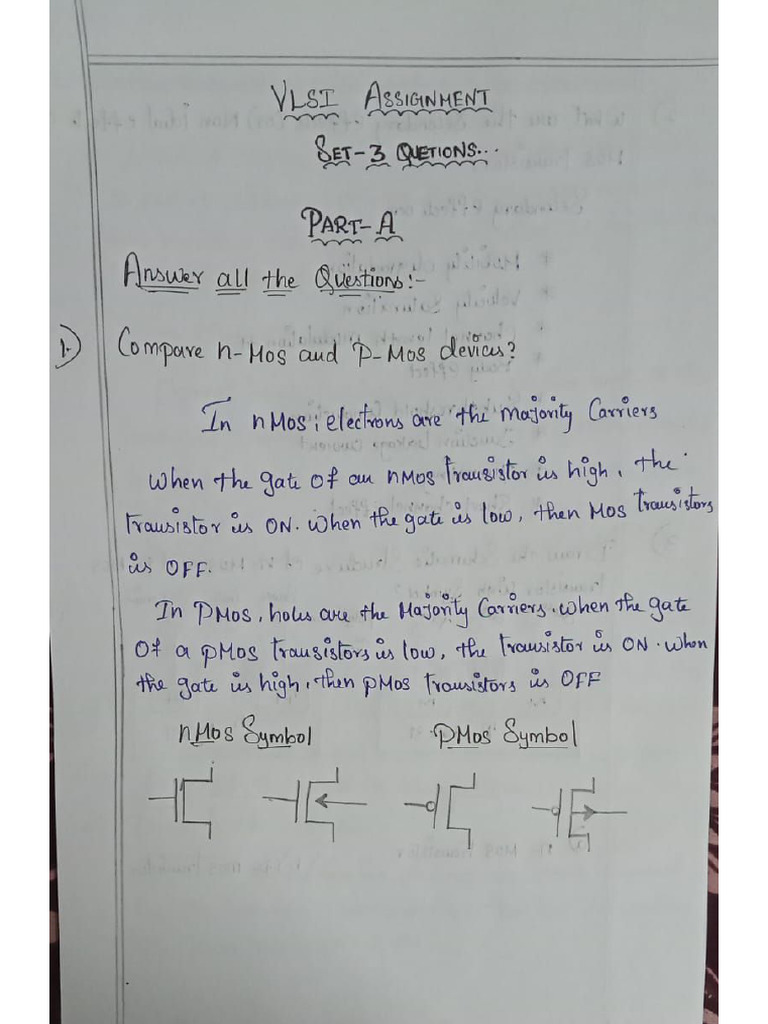 VLSI ASSIGNMENT
SET-3 QUETIONS...
PART-A
Answer all the Questions:-
1.) Compare n-Mos and P-Mos devices?
In nMos; electrons are the majority Carriers
When the gate of an nMos transistor is high, the
transistor is ON. When the gate is low, then Mos transistors
is OFF.
In PMos, holes are the Majority Carriers. When the gate
Of a pMos transistors is low, the transistor is ON. When
the gate is high, then pMos transistors is OFF
nMos Symbol PMos Symbol